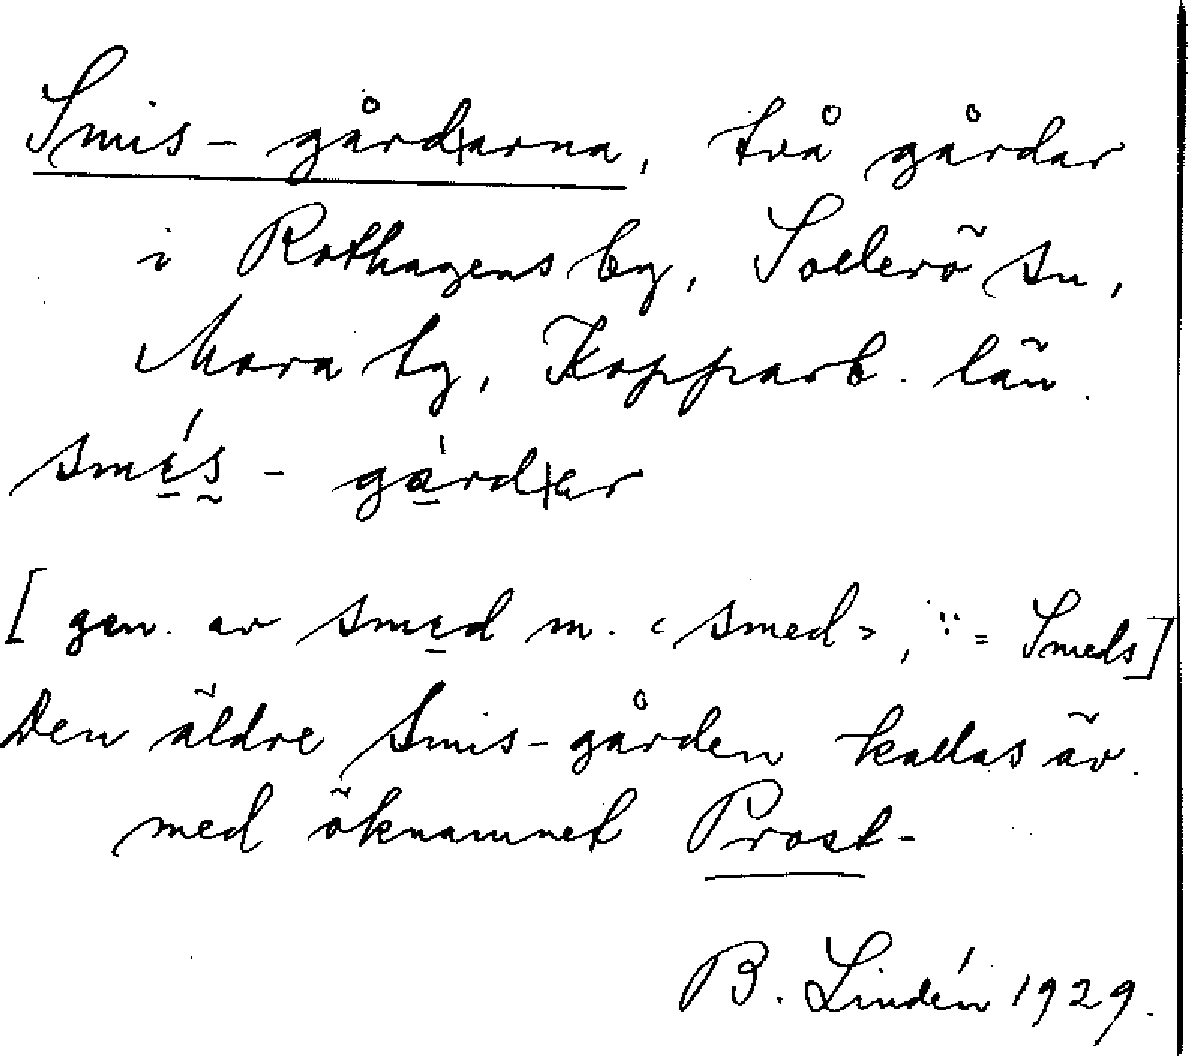 Smis-gård|arna, två gårdar
i Rothagens by, Sollerö sn,
Mora tg, Kopparb. län.
smís - gàrd|er
[gen. av smed m. ‹smed›, ɔ: = Smeds]
Den äldre Smis-gården kallas äv.
med öknamnet Prost-
B. Lindén 1929.